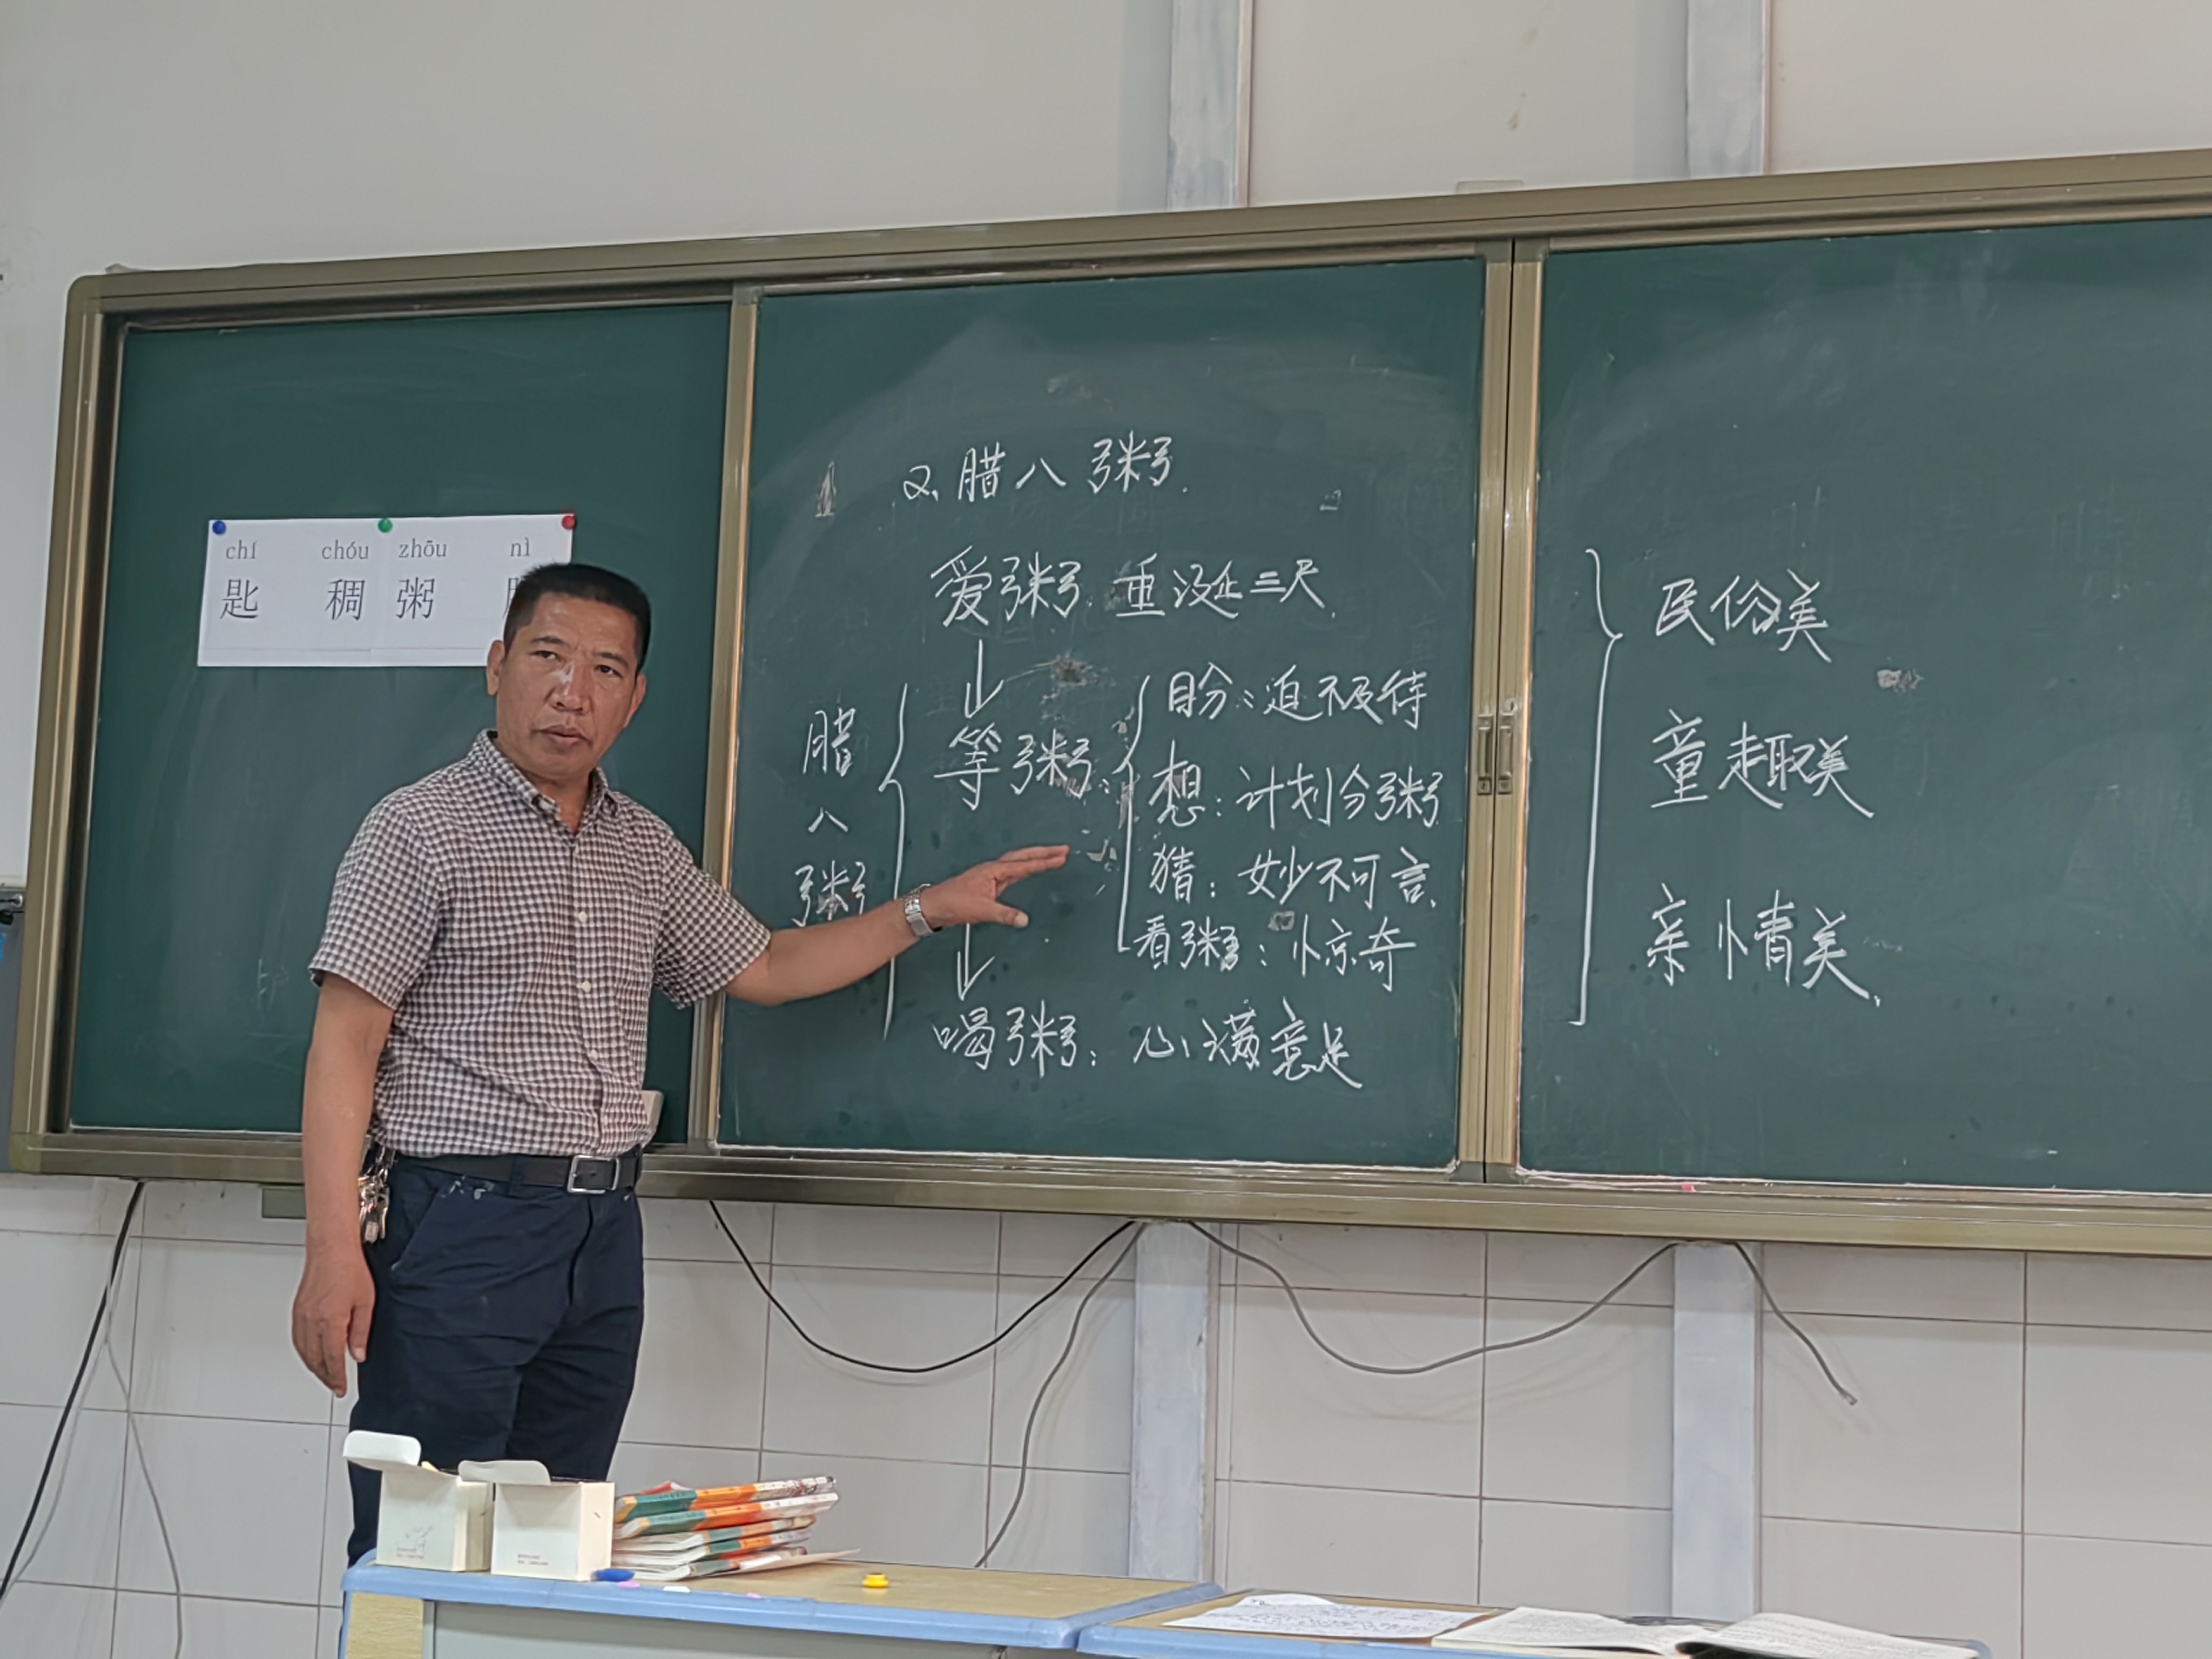 chí chóu zhōu nì
匙 稠 粥
2、腊八粥
爱粥 垂涎三尺
腊八粥
等粥:
盼:迫不及待
想:计划分粥
猜:妙不可言
看粥:惊奇
喝粥:心满意足
民俗美
童趣美
亲情美